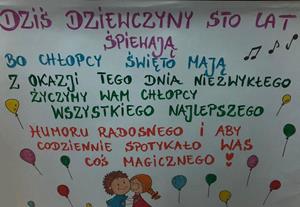 DZIŚ DZIEWCZYNY STO LAT
ŚPIEWAJĄ
BO CHŁOPCY ŚWIĘTO MAJĄ
Z OKAZJI TEGO DNIA NIEZWYKŁEGO
ŻYCZYMY WAM CHŁOPCY
WSZYSTKIEGO NAJLEPSZEGO
HUMORU RADOSNEGO I ABY
CODZIENNIE SPOTYKAŁO WAS
COŚ MAGICZNEGO!